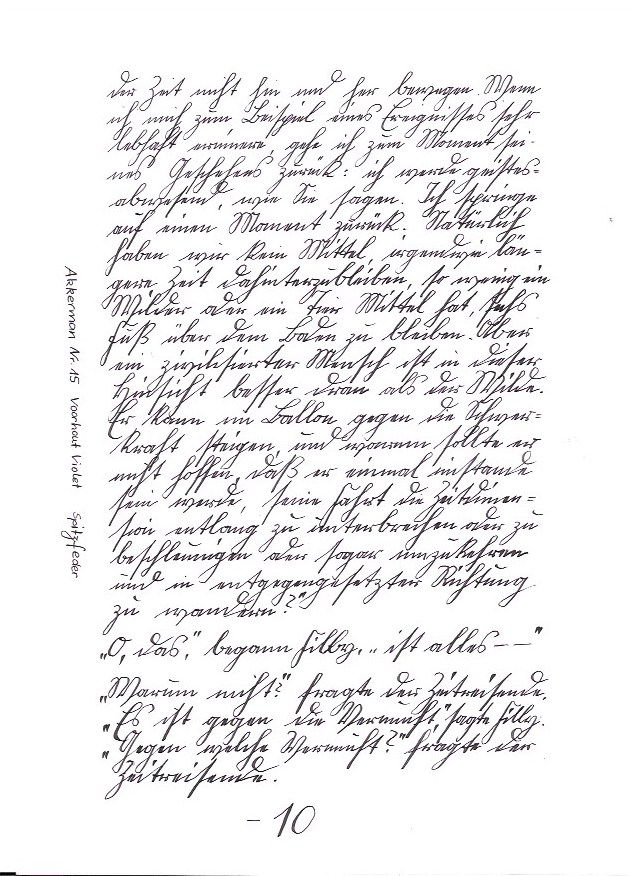 der Zeit nicht hin und her bewegen. Wenn
ich mich zum Beispiel eines Ereignisses sehr
lebhaft erinnere, gehe ich zum Moment sei-
nes Geschehens zurück: ich werde geistes=
abwesend, wie Sie sagen. Ich springe
auf einen Moment zurück. Natürlich
haben wir kein Mittel, irgendwie län=
gere Zeit dahinterzubleiben, so wenig ein
Wilder oder ein Tier Mittel hat, sechs
Fuß über dem Boden zu bleiben. Aber
ein zivilisierter Mensch ist in dieser
Hinsicht besser dran als der Wilde.
Er kann im Ballon gegen die Schwer=
kraft steigen, und warum sollte er
nicht hoffen, daß er einmal imstande
sein werde, seine Fahrt die Zeitdimen=
sion entlang zu unterbrechen oder zu
beschleunigen oder sogar umzukehren
und in entgegengesetzter Richtung
zu wandern?"
„O, das," begann Filby, „ist alles --"
„Warum nicht?" fragte der Zeitreisende.
„Es ist gegen die Vernunft," sagte Filby.
„Gegen welche Vernunft?" fragte der
Zeitreisende.
- 10
Akkerman Nr. 15 Voorhout Violet Spitzfeder